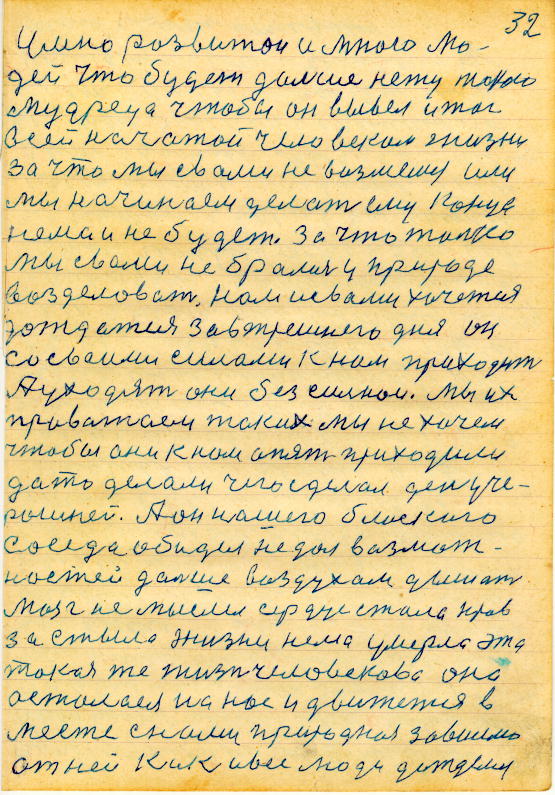 32
Умно развитои и много лю-
дей что будет дальше нету такого
мудреца чтобы он вывел итог
всей начатой человеком жизни
за что мы свами не возмемся или
мы начинаем делат ему Конца
нема и не будет. За что толко
мы свами не бралися у природе
возделоват. Нам и свами хочется
дождатися завтрешнего дня он
со своими силами К нам приходят
А уходят они без силнои. Мы их
проважаем таких мы не хочем
чтобы они к нам опят приходили
да то делали чего сделал ден уче-
рашней. А он нашего блиского
соседа обидел не дал возмож-
ностей дальше воздухам дышат
мозг не мыслил сердце стала кров
застыла жизни нема умерла эта
такая же жизн человекова она
осталася на нас и движется в
месте снами природная зависимо
от ней Как и все люди дождем